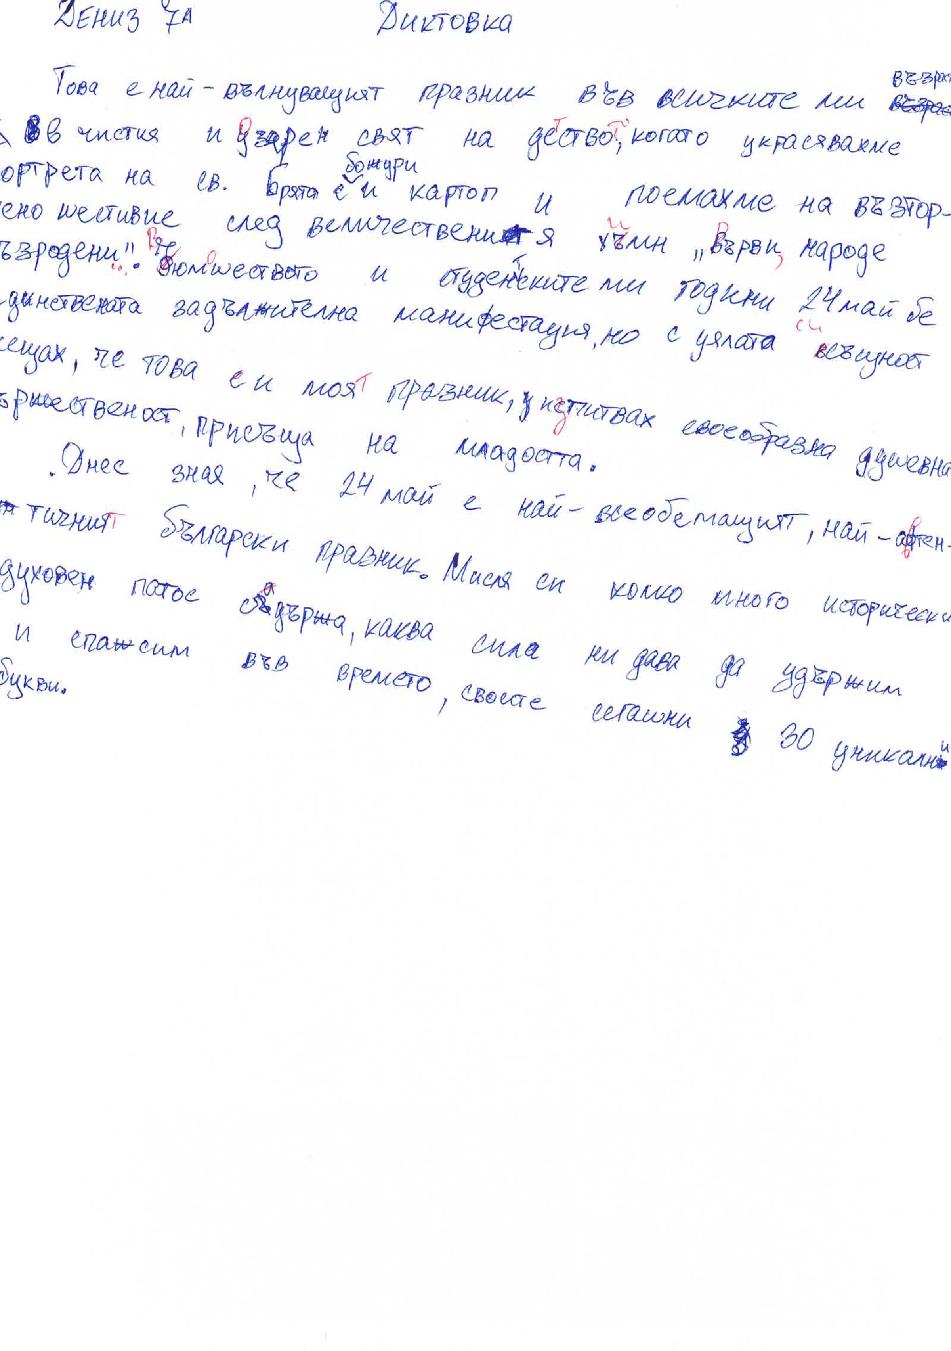 Дениз 7А Диктовка
Това е най-вълнуващият празник във всичките ми
в чистия и озарен свят на детство, когато украсявахме
ортрета на св. Братя с божури и картоп и поемахме на възтор-
ено шествие след величествения химн „Върви, народе
ъзродени". В юношеството и студентските ми години 24 май бе
динствената задължителна манифестация, но с цялата си същност
сещах, че това е и моят празник, и изпитвах своеобразна душевна
ържественост, присъща на младостта.
Днес зная, че 24 май е най-всеобемащият, най-автен-
тичният български празник. Мисля си колко много исторически
духовен патос съдържа, каква сила ни дава да удържим
и спажсим във времето, своите сегашни 30 уникални
букви.